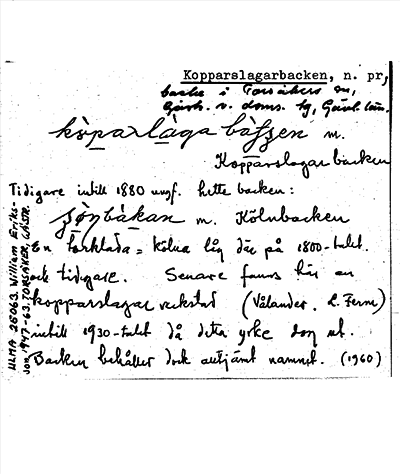 Kopparslagarbacken, n. pr,
backe i Torsåkers sn,
Gästr. v. doms. hg, Gävl. län.
köparlåga båkken m.
Kopparslagarbacken
Tidigare intill 1880 ungf. hette backen:
m. Kölnbacken
En torklada = kölna låg där på 1800-talet
och tidigare. Senare fanns här en
kopparslagarverkstad (Vålander, L. Ferm)
intill 1930-talet då detta yrke dog ut.
Backen behåller dock alltjämt namnet. (1960)
ULMA 26063. William Eriks-
son 1947-63. TORSÅKER, GÄSTR.